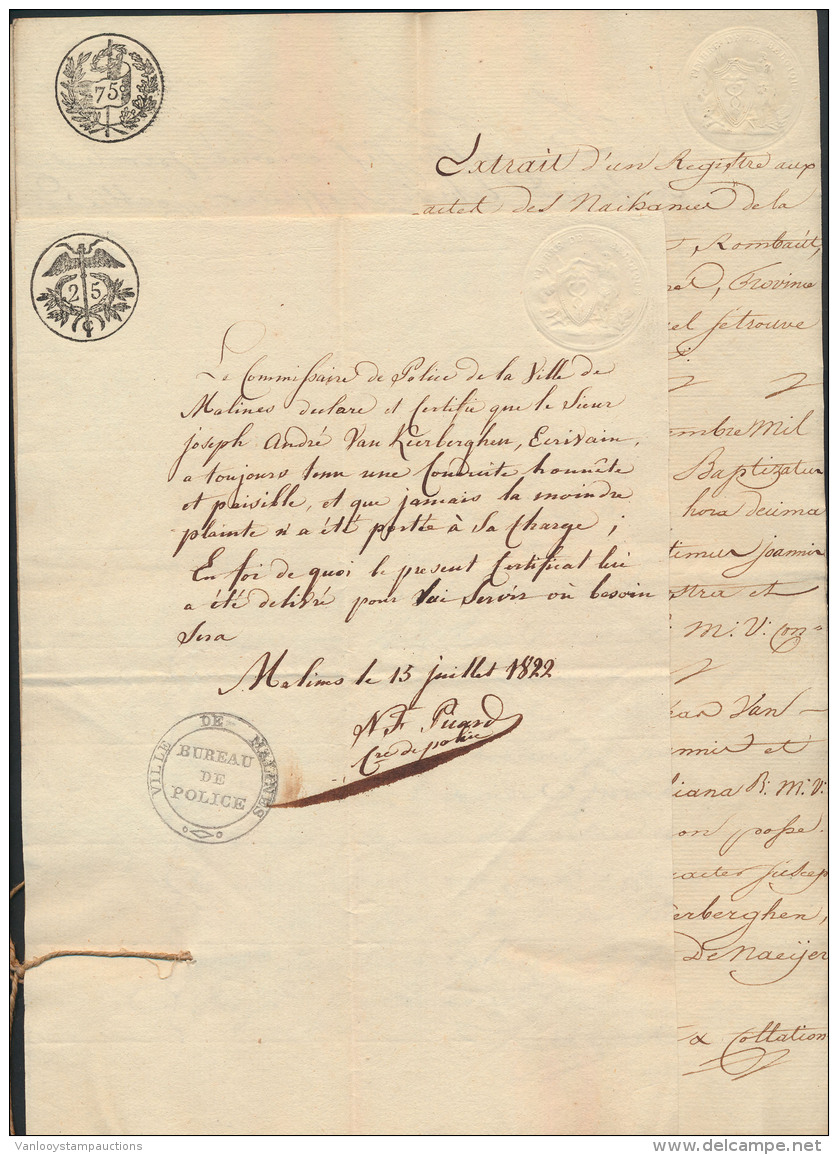 75 c
Extrait d'un Registre aux
actes des Naissances de la
Rombaut,
25
C
Province
el se trouve
Le Commissaire de Police de la Ville de
Malines declare et Certifie que le Sieur
joseph André Van Kierberghen, Ecrivain,
a toujours tenu une Conduite honnête
et paisible, et que jamais la moindre
plainte n'a été portée à Sa Charge ;
En foi de quoi le present Certificat lui
a été delivré pour lui Servir où besoin
Sera
Malines le 15 juillet 1822
N. F. Picard
Cre de police
VILLE DE MALINES
BUREAU
DE
POLICE
embre Mil
Baptizatus
hora decima
timus joannis
ostra et
M: V: con
Van
annis et
liana B: M: V:
on posse
suscep
erberghen,
De Naeijer
Collation
Vanlooystampauctions
www.delcampe.net